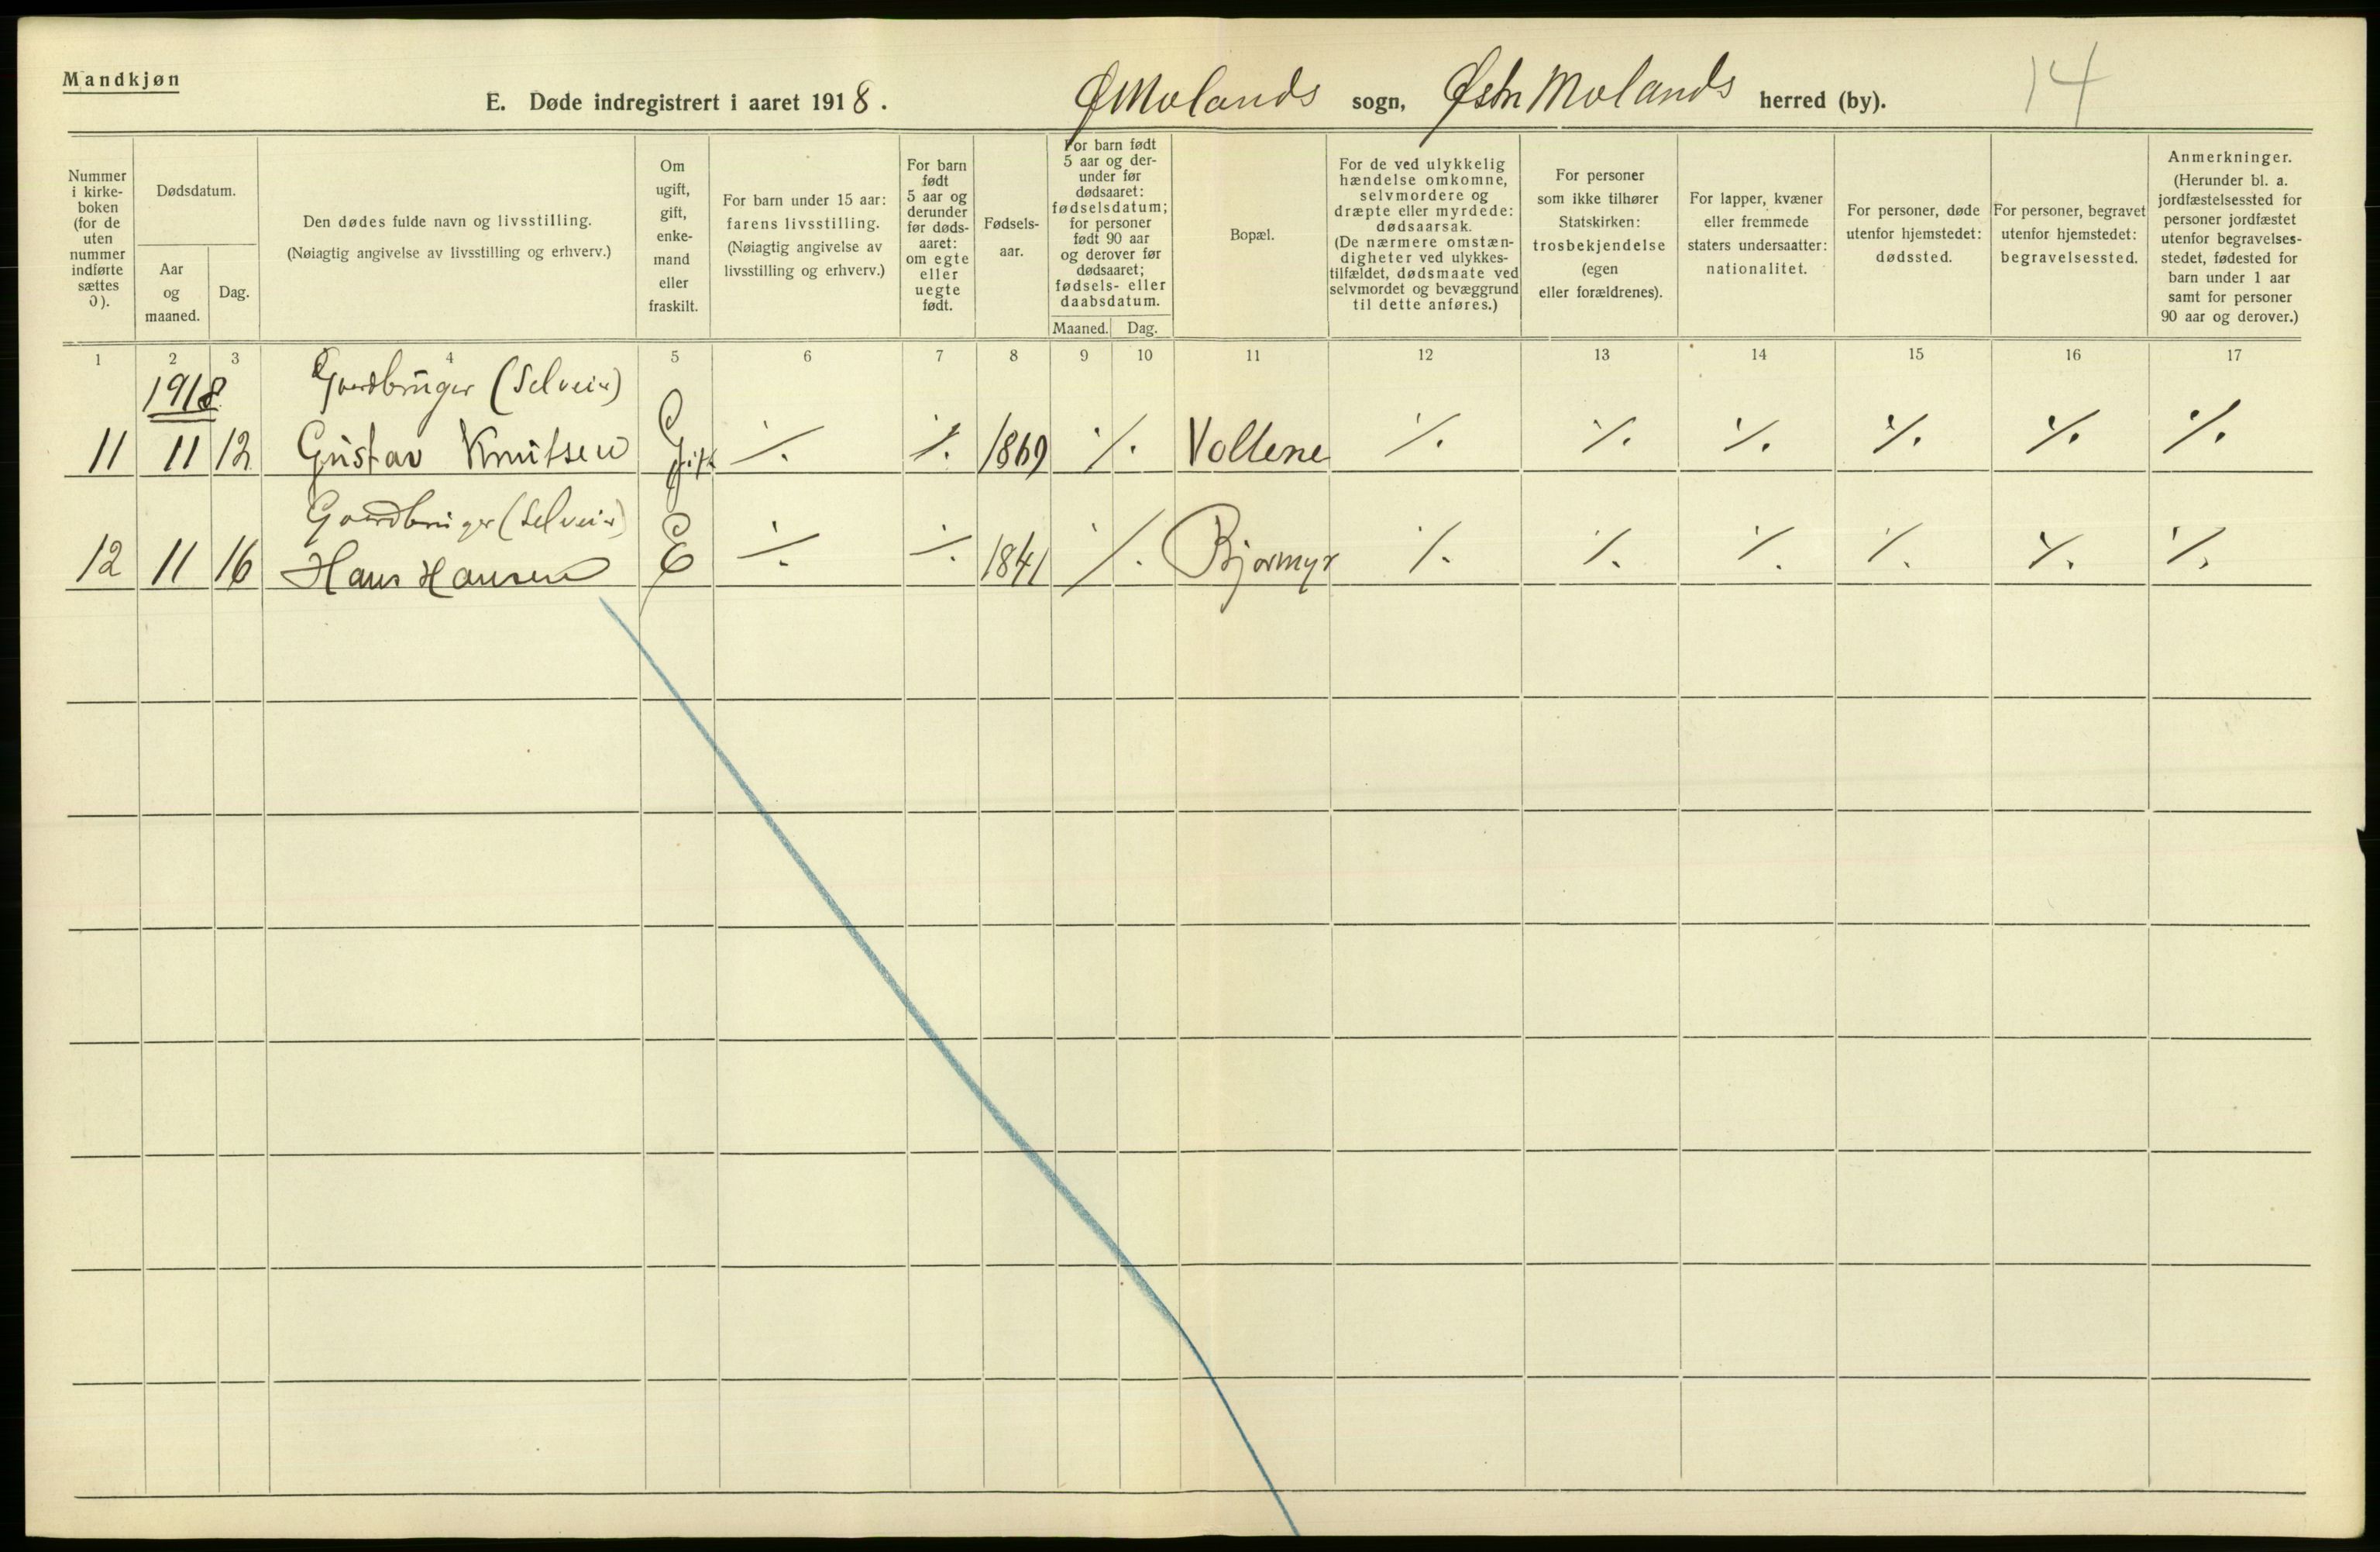 Mandkjøn
E. Døde indregistrert i aaret 1918. ØMolands sogn, Østr Molands herred (by). 14
Nummer i kirke-boken (for de uten nummer indførte sættes 0).
Dødsdatum.
Aar og maaned.
Dag.
Den dødes fulde navn og livsstilling.
(Nøiagtig angivelse av livsstilling og erhverv.)
Om ugift, gift, enke-mand eller fraskilt.
For barn under 15 aar: farens livsstilling.
(Nøiagtig angivelse av livsstilling og erhverv.)
For barn født 5 aar og derunder før døds-aaret: om egte eller uegte født.
Fødsels-aar.
For barn født 5 aar og der-under før dødsaaret: fødselsdatum; for personer født 90 aar og derover før dødsaaret; fødsels- eller daabsdatum.
Maaned. Dag.
Bopæl.
For de ved ulykkelig hændelse omkomne, selvmordere og dræpte eller myrdede: dødsaarsak.
(De nærmere omstæn-digheter ved ulykkes-tilfældet, dødsmaate ved selvmordet og bevæggrund til dette anføres.)
For personer som ikke tilhører Statskirken: trosbekjendelse (egen eller forældrenes).
For lapper, kvæner eller fremmede staters undersaatter: nationalitet.
For personer, døde utenfor hjemstedet: dødssted.
For personer, begravet utenfor hjemstedet: begravelsessted.
Anmerkninger.
(Herunder bl. a. jordfæstelsessted for personer jordfæstet utenfor begravelses-stedet, fødested for barn under 1 aar samt for personer 90 aar og derover.)
1 2 3 4 5 6 7 8 9 10 11 12 13 14 15 16 17
1918 Gaardbruger (Selveier)
11 11 12 Gustav Knutsen Gift ./. ./. 1869 ./. Vollene ./. ./. ./. ./. ./. ./.
Gaardbruger (Selveier)
12 11 16 Hans Hansen E ./. ./. 1841 ./. Bjormyr ./. ./. ./. ./. ./. ./.